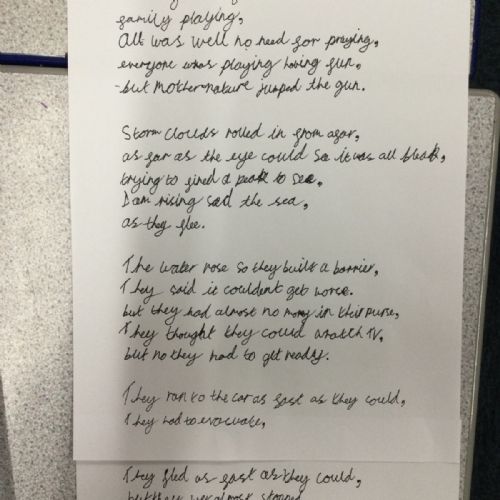 family playing,
All was well no need for praying,
everyone was playing having fun,
-but Mothernature jumped the gun.
Storm clouds rolled in from afar,
as far as the eye could se it was all bleak,
trying to find a peak to see,
I am rising said the sea,
as they flee.
The water rose so they built a barrier,
They said it couldent get worse.
but they had almost no mony in their purse,
They thought they could watch TV,
but no they had to get ready.
They ran to the car as fast as they could,
They had to evacuate,
They fled as fast as they could,
but they wer almost stopped